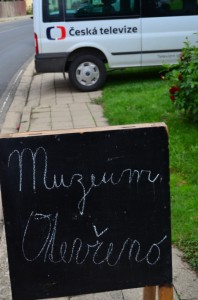 Česká televize
Muzeum
Otevřeno